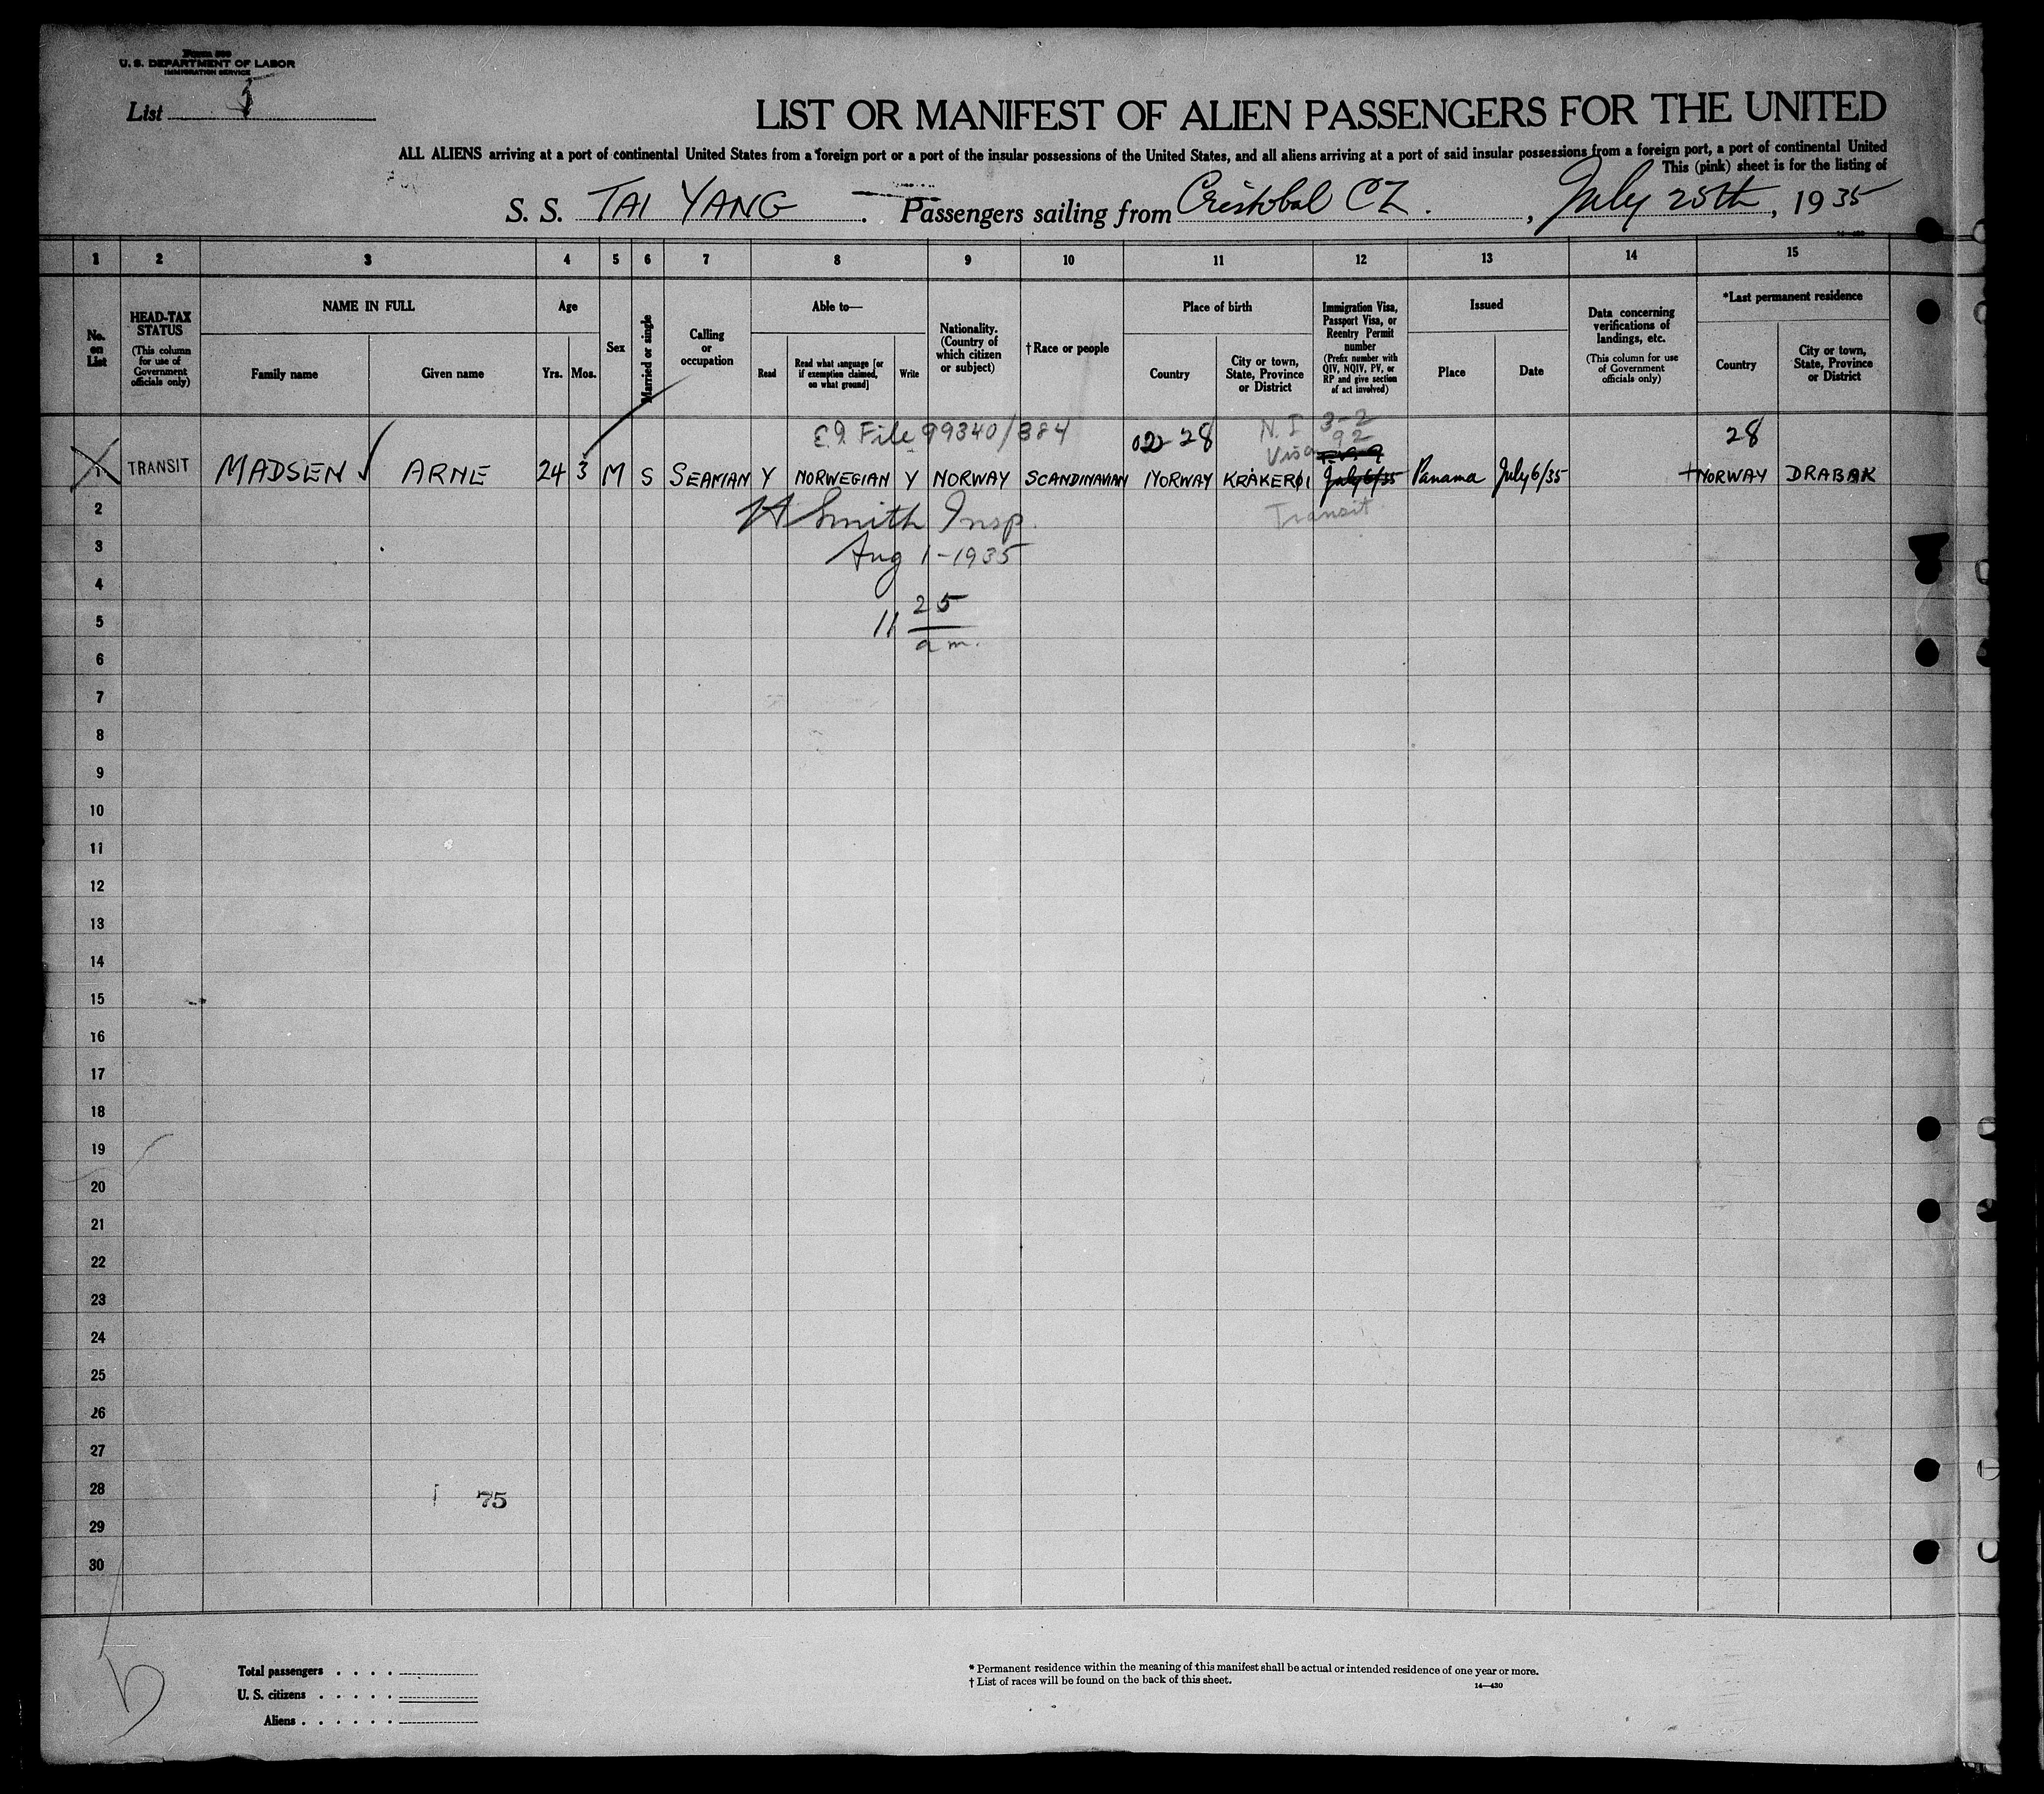 Form 500
U. S. DEPARTMENT OF LABOR
IMMIGRATION SERVICE
List 5
LIST OR MANIFEST OF ALIEN PASSENGERS FOR THE UNITED
ALL ALIENS arriving at a port of continental United States from a foreign port or a port of the insular possessions of the United States, and all aliens arriving at a port of said insular possessions from a foreign port, a port of continental United
This (pink) sheet is for the listing of
S. S. TAI YANG . Passengers sailing from Cristobal CZ . , July 25th , 19 35
1 2 3 4 5 6 7 8 9 10 11 12 13 14 15
No. on List
HEAD-TAX STATUS
(This column for use of Government officials only)
NAME IN FULL
Family name
Given name
Age
Yrs. Mos.
Sex
Married or single
Calling or occupation
Able to—
Read
Read what language [or if exemption claimed, on what ground]
Write
Nationality. (Country of which citizen or subject)
† Race or people
Place of birth
Country
City or town, State, Province or District
Immigration Visa, Passport Visa, or Reentry Permit number
(Prefix number with QIV, NQIV, PV, or RP and give section of act involved)
Issued
Place
Date
Data concerning verifications of landings, etc.
(This column for use of Government officials only)
*Last permanent residence
Country
City or town, State, Province or District
File 99340/384 28 N. I 3-2 28
Visa 92
1 TRANSIT MADSEN ARNE 24 3 M S SEAMAN Y NORWEGIAN Y NORWAY SCANDINAVIAN NORWAY KRÅKERØI July 6/35 Panama July 6/35 NORWAY DRABAK
2 H Smith Insp. Transit
3 Aug 1-1935
4
5 11 25 a m.
6
7
8
9
10
11
12
13
14
15
16
17
18
19
20
21
22
23
24
25
26
27
28 75
29
30
Total passengers . . . .
U. S. citizens . . . . .
Aliens . . . . . .
* Permanent residence within the meaning of this manifest shall be actual or intended residence of one year or more.
† List of races will be found on the back of this sheet.
14—430